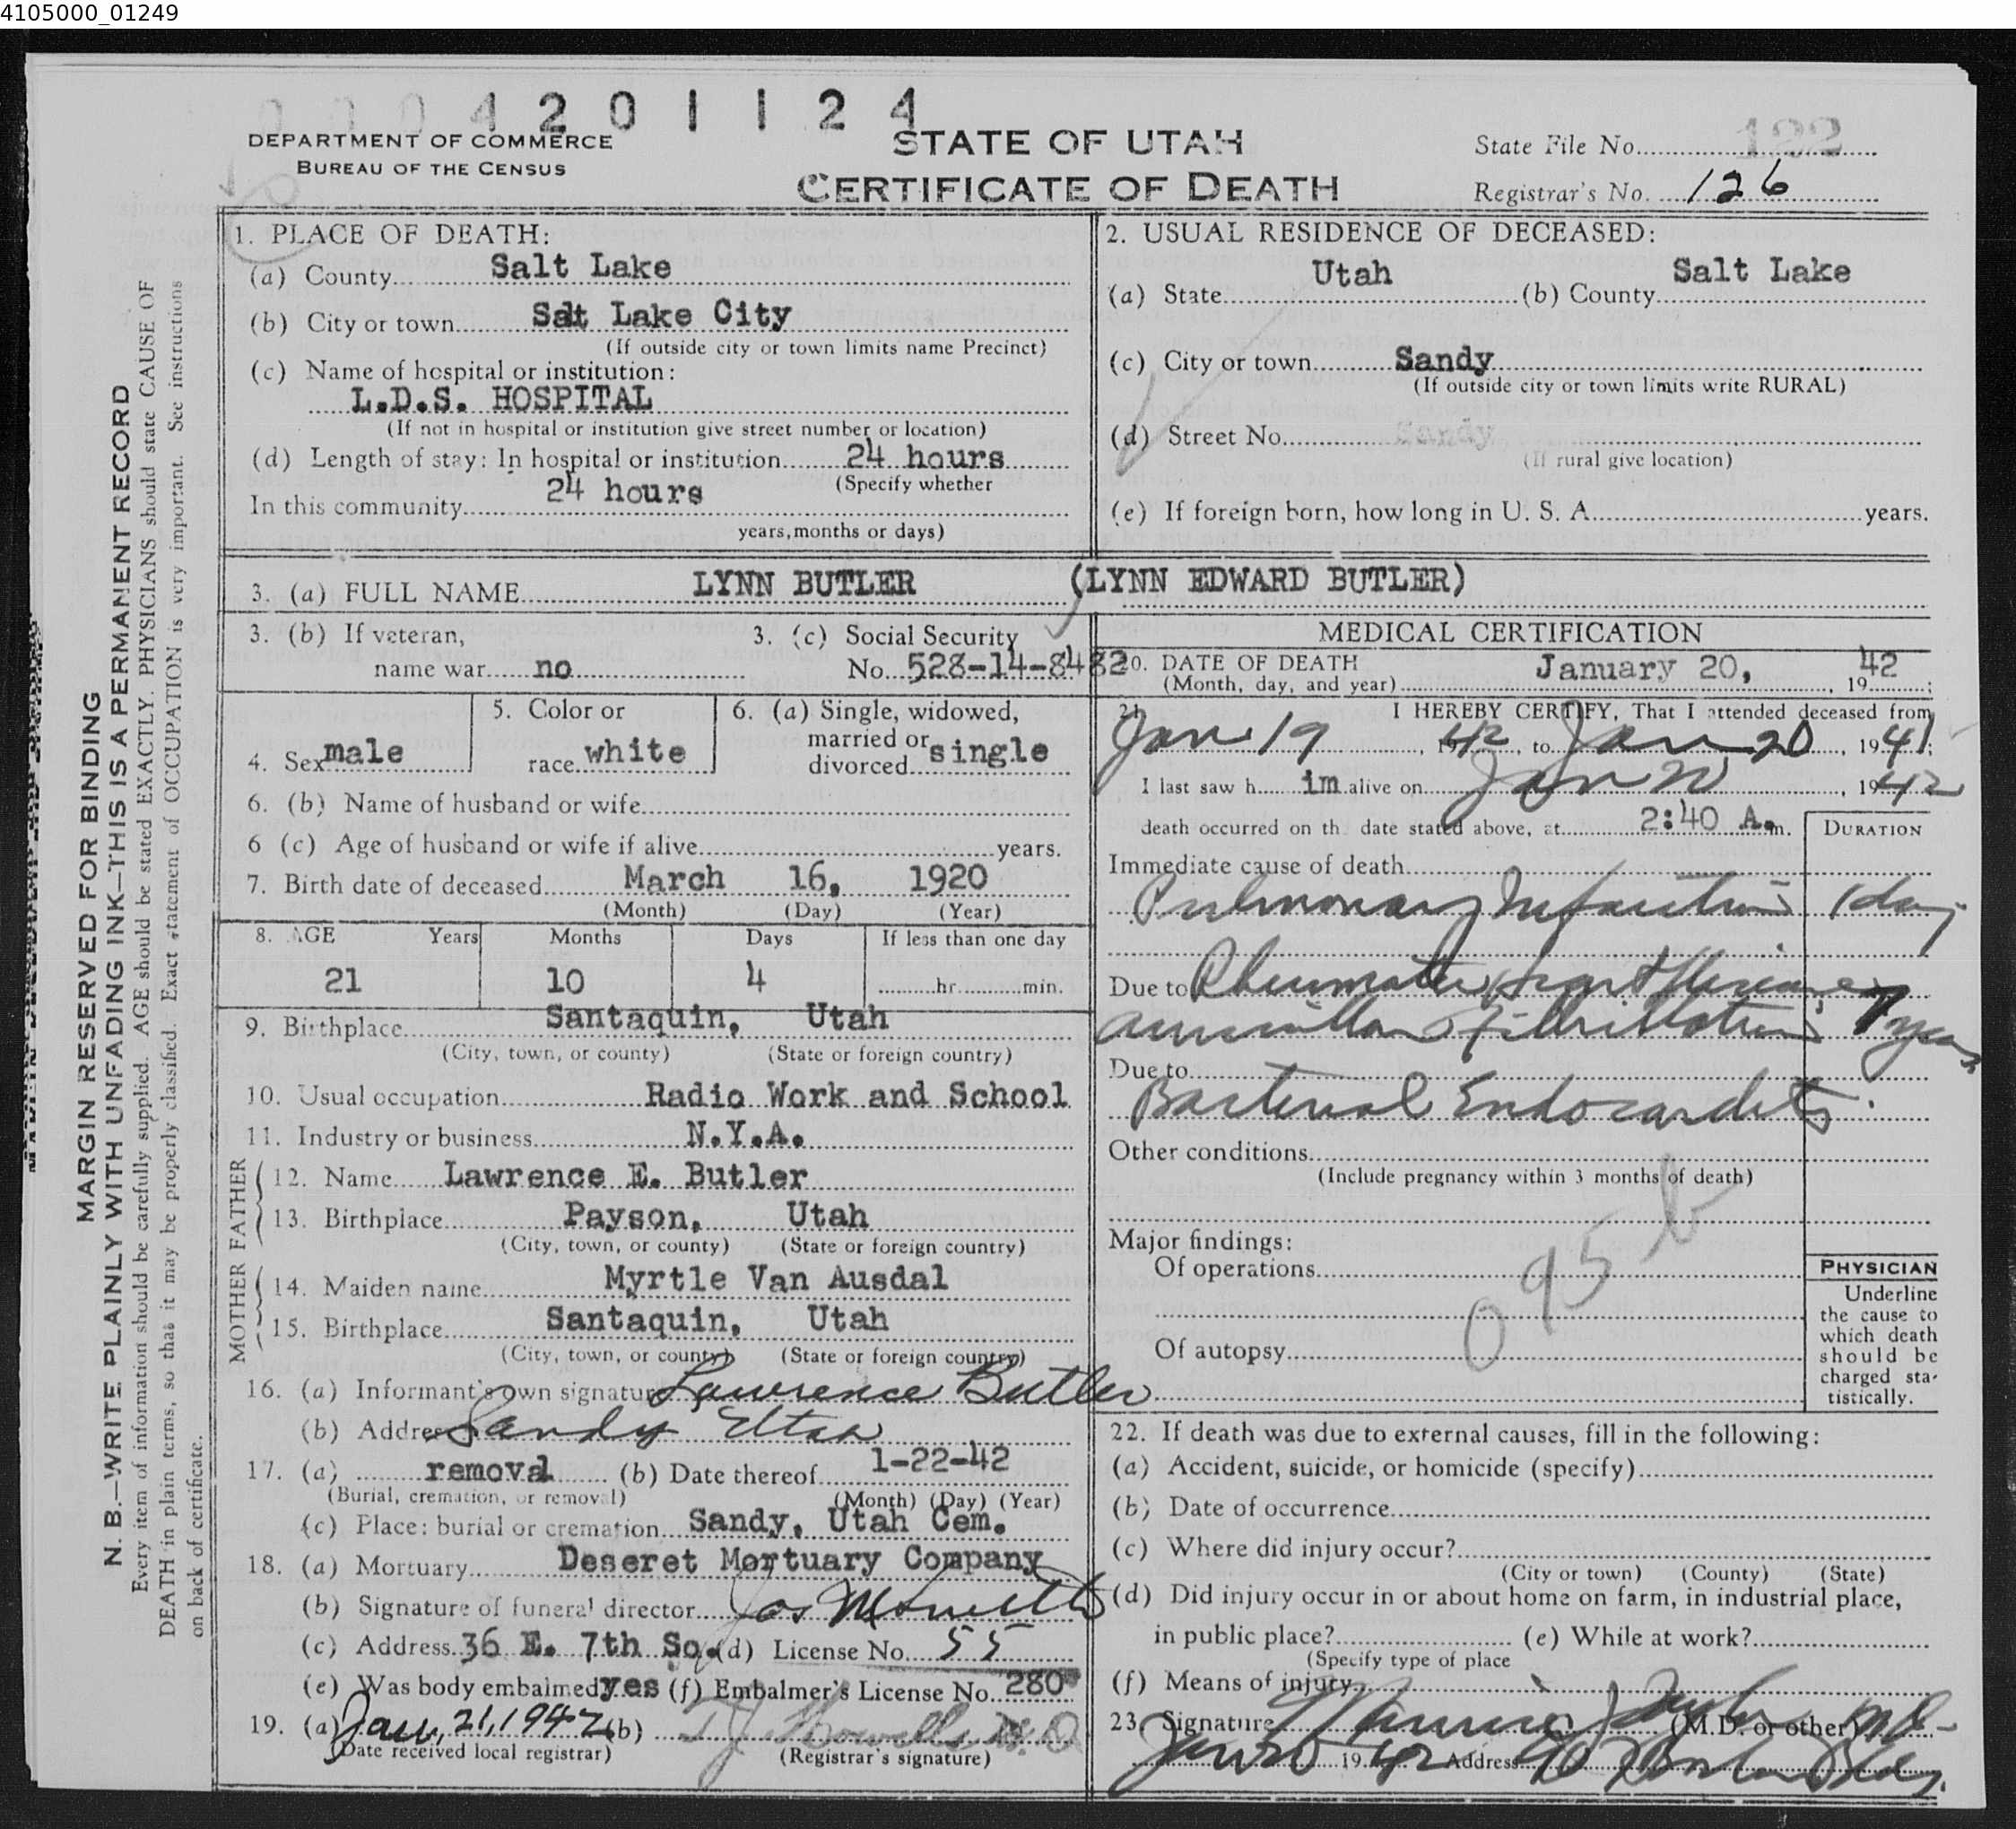 4105000_01249
0004201124
DEPARTMENT OF COMMERCE
BUREAU OF THE CENSUS
STATE OF UTAH
CERTIFICATE OF DEATH
State File No. 122
Registrar's No. 126
MARGIN RESERVED FOR BINDING
N. B.—WRITE PLAINLY WITH UNFADING INK—THIS IS A PERMANENT RECORD
Every item of information should be carefully supplied. AGE should be stated EXACTLY. PHYSICIANS should state CAUSE OF
DEATH in plain terms, so that it may be properly classified. Exact statement of OCCUPATION is very important. See instructions
on back of certificate.
1. PLACE OF DEATH:
(a) County Salt Lake
(b) City or town Salt Lake City
(If outside city or town limits name Precinct)
(c) Name of hospital or institution:
L.D.S. HOSPITAL
(If not in hospital or institution give street number or location)
(d) Length of stay: In hospital or institution 24 hours
(Specify whether
In this community 24 hours
years, months or days)
2. USUAL RESIDENCE OF DECEASED:
(a) State Utah (b) County Salt Lake
(c) City or town Sandy
(If outside city or town limits write RURAL)
(d) Street No. Sandy
(If rural give location)
(e) If foreign born, how long in U. S. A. years.
3. (a) FULL NAME LYNN BUTLER (LYNN EDWARD BUTLER)
3. (b) If veteran,
name war no
3. (c) Social Security
No. 528-14-8482
4. Sex male
5. Color or
race white
6. (a) Single, widowed,
married or
divorced single
6. (b) Name of husband or wife
6 (c) Age of husband or wife if alive years.
7. Birth date of deceased March 16, 1920
(Month) (Day) (Year)
8. AGE Years Months Days If less than one day
21 10 4 hr. min.
9. Birthplace Santaquin, Utah
(City, town, or county) (State or foreign country)
10. Usual occupation Radio Work and School
11. Industry or business N.Y.A.
FATHER
12. Name Lawrence E. Butler
13. Birthplace Payson, Utah
(City, town, or county) (State or foreign country)
MOTHER
14. Maiden name Myrtle Van Ausdal
15. Birthplace Santaquin, Utah
(City, town, or county) (State or foreign country)
16. (a) Informant's own signature Lawrence Butler
(b) Address Sandy Utah
17. (a) removal (b) Date thereof 1-22-42
(Burial, cremation, or removal) (Month) (Day) (Year)
(c) Place: burial or cremation Sandy, Utah Cem.
18. (a) Mortuary Deseret Mortuary Company
(b) Signature of funeral director Jos
(c) Address 36 E. 7th So. (d) License No. 55
(e) Was body embalmed yes (f) Embalmer's License No. 280
19. (a) Jan. 21, 1942 (b) T J Howells M. D
(Date received local registrar) (Registrar's signature)
MEDICAL CERTIFICATION
20. DATE OF DEATH January 20, 1942;
(Month, day, and year)
21. I HEREBY CERTIFY, That I attended deceased from
Jan 19, 1942, to Jan 20, 1941;
I last saw him alive on Jan 20, 1942
death occurred on the date stated above, at 2:40 A.m.
DURATION
Immediate cause of death
Pulmonary Infarction 1 day
Due to Rheumatic heart disease
auricular Fibrillation years
Due to
Bacterial Endocarditis
Other conditions
(Include pregnancy within 3 months of death)
095 b
Major findings:
Of operations
Of autopsy
PHYSICIAN
Underline
the cause to
which death
should be
charged sta-
tistically.
22. If death was due to external causes, fill in the following:
(a) Accident, suicide, or homicide (specify)
(b) Date of occurrence
(c) Where did injury occur?
(City or town) (County) (State)
(d) Did injury occur in or about home on farm, in industrial place,
in public place? (e) While at work?
(Specify type of place
(f) Means of injury
23. Signature (M.D. or other) MD
Jan 20 1942 Address